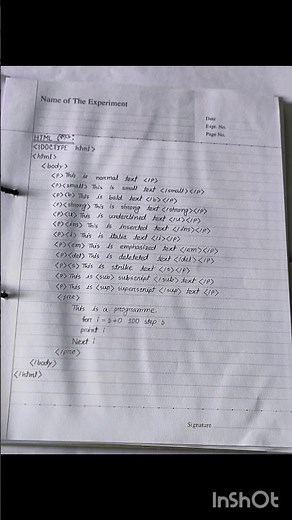 Name of The Experiment
Date
Expt. No.
Page No.
HTML
<!DOCTYPE html>
<html>
<body>
<p> This is normal text </p>
<p><small> This is small text </small></p>
<p><b> This is bold text </b></p>
<p><strong> This is strong text </strong></p>
<p><u> This is underlined text </u></p>
<p><ins> This is inserted text </ins></p>
<p><i> This is Italic text </i></p>
<p><em> This is emphasized text </em></p>
<p><del> This is deleteted text </del></p>
<p><s> This is strike text </s></p>
<p> This is <sub> subscript </sub> text </p>
<p> This is <sup> superscript </sup> text </p>
<pre>
This is a programme.
for i = to 200 step
print i
Next i
</pre>
</body>
</html>
Signature
InShOt